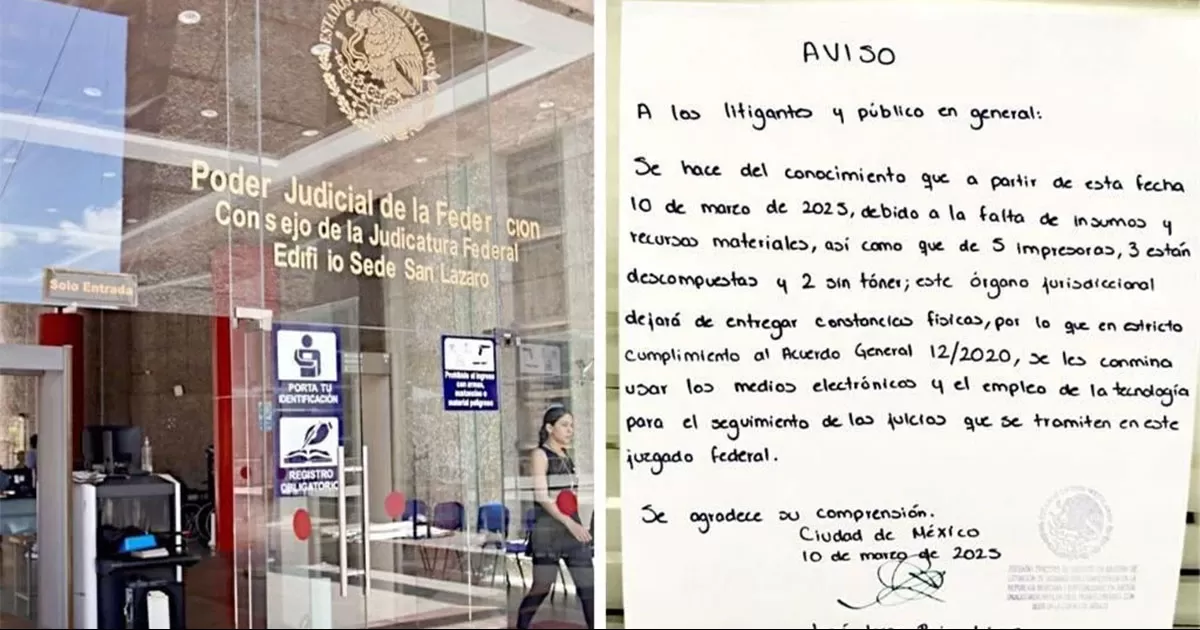 ESTADOS UNIDOS MEXICANOS
Poder Judicial de la Feder cion
Consejo de la Judicatura Federal
Edifi io Sede San Lázaro
Solo Entrada
PORTA TU
IDENTIFICACIÓN
REGISTRO
OBLIGATORIC
Prohibido el ingreso
con armas,
sustancias o
material peligroso
AVISO
A los litigantes y público en general:
Se hace del conocimiento que a partir de esta fecha
10 de marzo de 2025, debido a la falta de insumos y
recursos materiales, así como que de 5 impresoras, 3 están
descompuestas y 2 sin tóner; este órgano jurisdiccional
dejará de entregar constancias físicas, por lo que en estricto
cumplimiento al Acuerdo General 12/2020, se les conmina
usar los medios electrónicos y el empleo de la tecnología
para el seguimiento de los juicios que se tramiten en este
juzgado federal.
Se agradece su comprensión.
Ciudad de México
10 de marzo de 2025